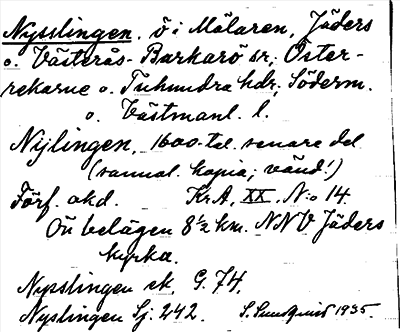 Nysslingen. ö i Mälaren, Jäders
o. Västerås-Barkarö sr, Öster-
rekarne o. Tuhundra hdr, Söderm.
o. Västmanl. l.
Nijlingen, 1600-tal. senare del
(samml. kopia; vänd!)
Förf. okd. Kr.A. XX. N:o 14
Ön belägen 8½ km. NNV Jäders
kyrka.
Nysslingen ek. G. 74.
Nyslingen Sj. 242. S. Sundqvist 1935.